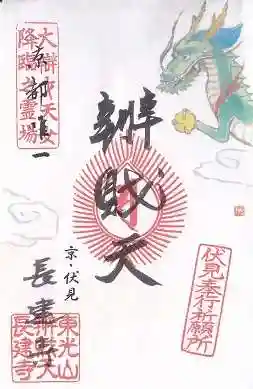 大辨財天女
降臨之霊場
京都唯一
辨財天
京・伏見
長建寺
伏見奉行祈願所
東光山
辨財天
長建寺